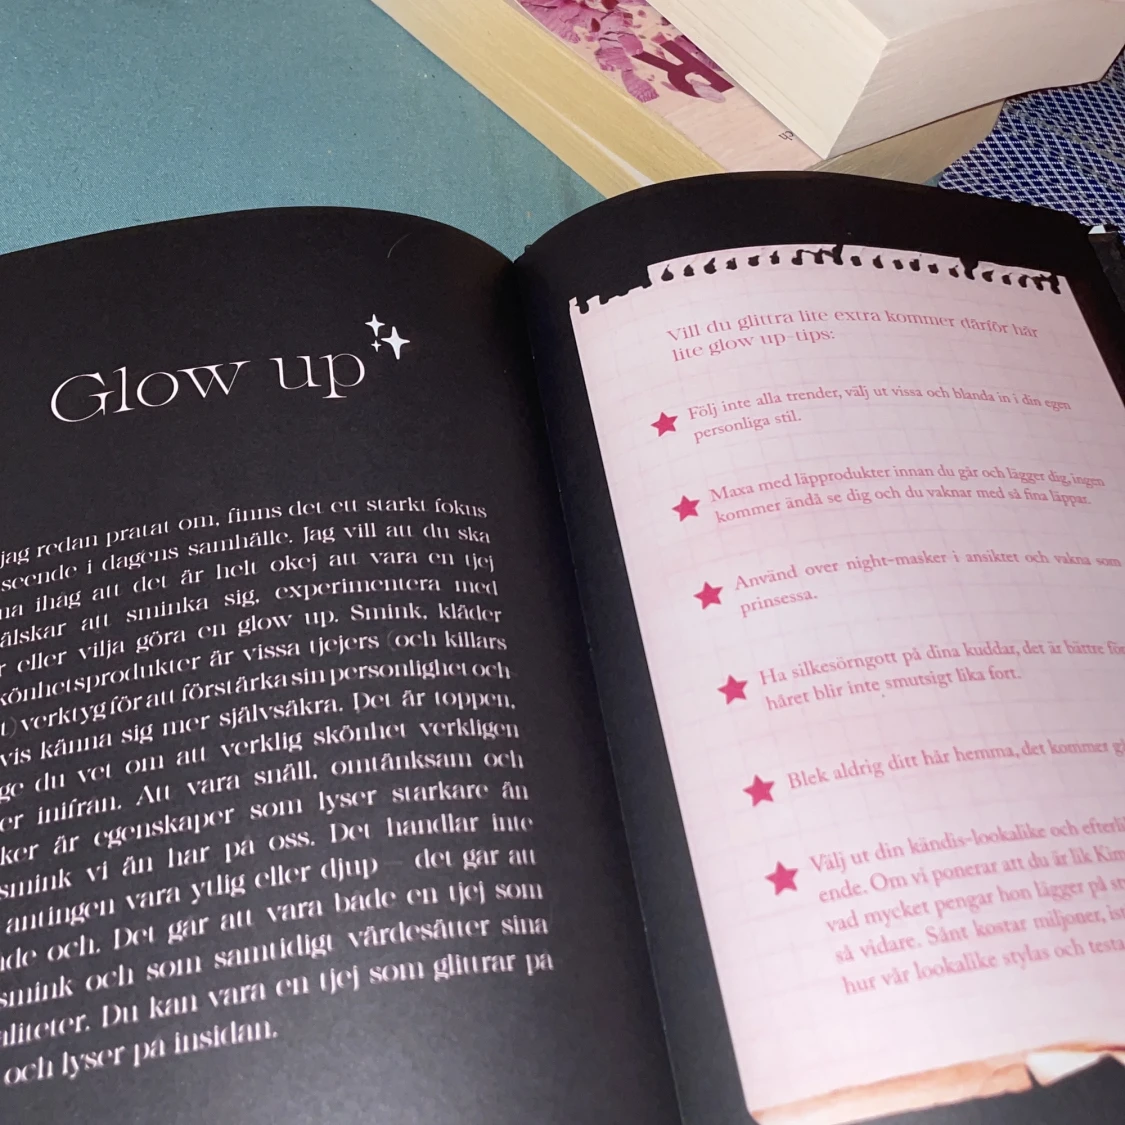 Glow up
jag redan pratat om, finns det ett starkt fokus
seende i dagens samhälle. Jag vill att du ska
na ihåg att det är helt okej att vara en tjej
älskar att sminka sig, experimentera med
r eller vilja göra en glow up. Smink, kläder
könhetsprodukter är vissa tjejers (och killars
t) verktyg för att förstärka sin personlighet och
vis känna sig mer självsäkra. Det är toppen,
ge du vet om att verklig skönhet verkligen
er inifrån. Att vara snäll, omtänksam och
ker är egenskaper som lyser starkare än
smink vi än har på oss. Det handlar inte
antingen vara ytlig eller djup – det går att
de och. Det går att vara både en tjej som
smink och som samtidigt värdesätter sina
aliteter. Du kan vara en tjej som glittrar på
och lyser på insidan.
Vill du glittra lite extra kommer därför här
lite glow up-tips:
Följ inte alla trender, välj ut vissa och blanda in i din egen
personliga stil.
Maxa med läpprodukter innan du går och lägger dig, ingen
kommer ändå se dig och du vaknar med så fina läppar.
Använd over night-masker i ansiktet och vakna som
prinsessa.
Ha silkesörngott på dina kuddar, det är bättre för
håret blir inte smutsigt lika fort.
Blek aldrig ditt hår hemma, det kommer g
Välj ut din kändis-lookalike och efterli
ende. Om vi ponerar att du är lik Kim
vad mycket pengar hon lägger på
så vidare. Sånt kostar miljoner, ist
hur vår lookalike stylas och testa